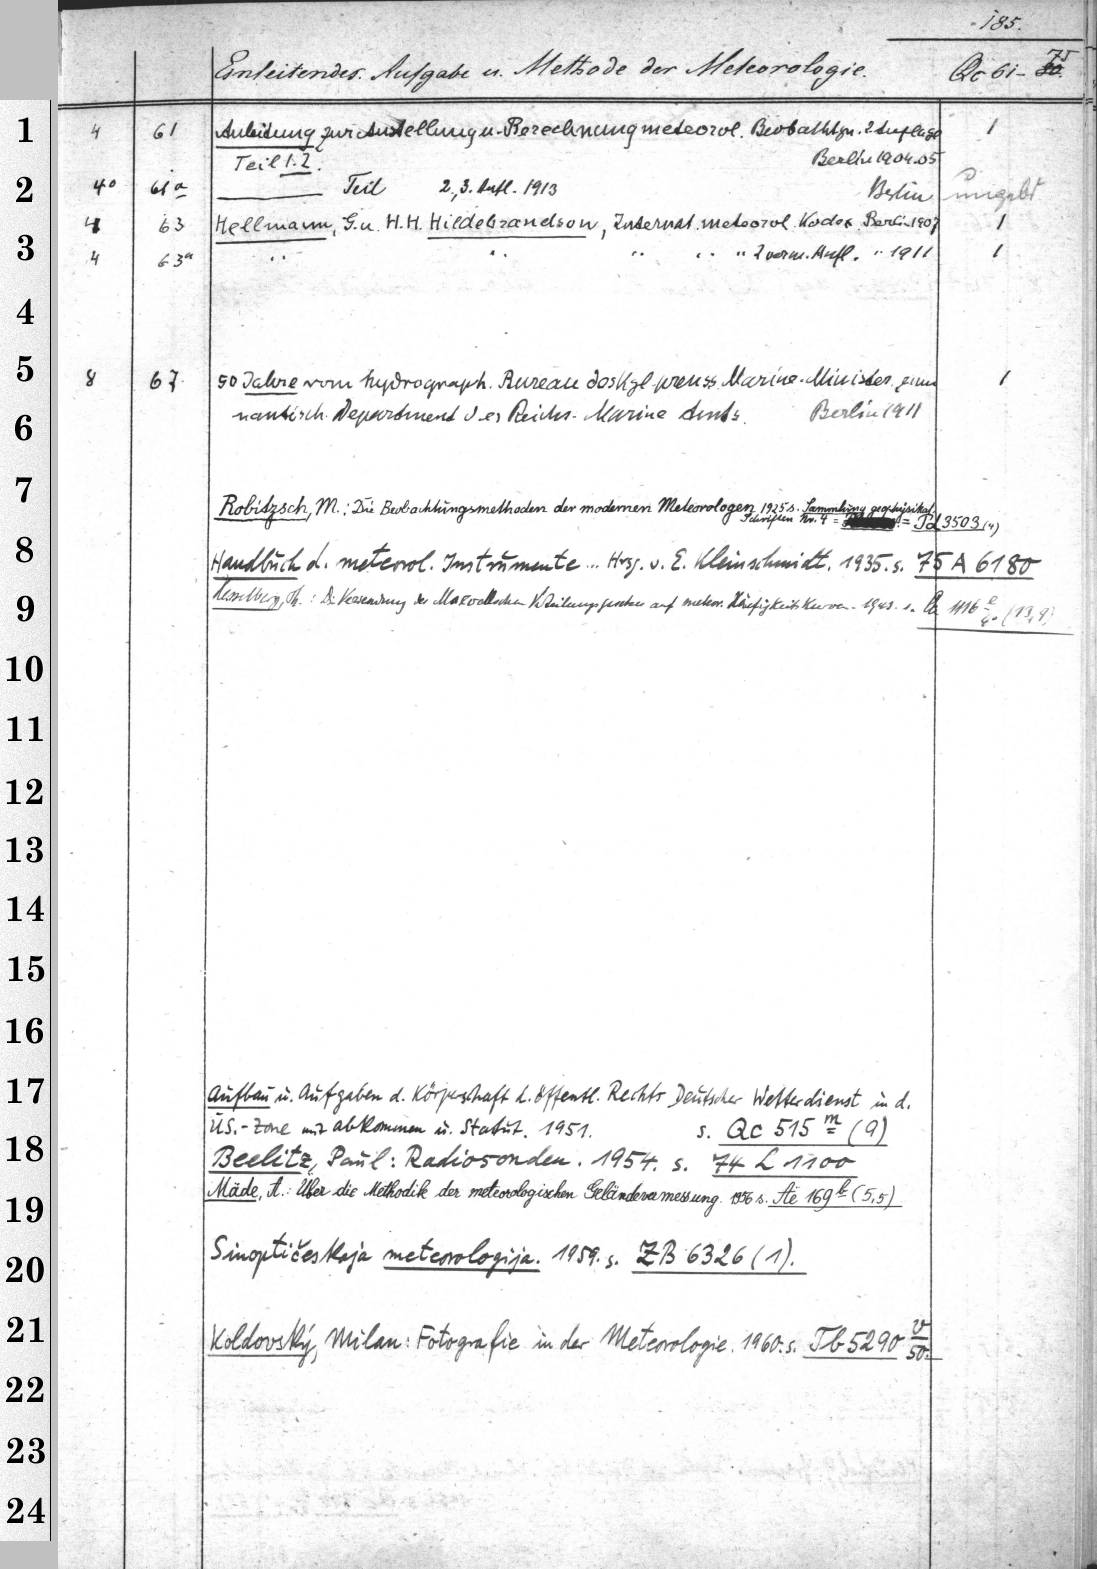 185.
Einleitendes. Aufgabe u. Methode der Meteorologie. Qc 61- 75
1 4 61 Anleitung zur Anstellung u. Berechnung meteorol. Beobachtgn. 2. Auflage 1
Teil 1.2. Berlin 1904-05
2 4° 61a Teil 2., 3. Aufl. 1913 Berlin
4 63 Hellmann, G. u. H.H. Hildebrandson, Internat. meteorol. Kodex Berlin 1907 1
3 4 63a " " " " " 2 verm. Aufl. " 1911 1
4
5 8 67 50 Jahre vom hydrograph. Bureau des Kgl. preuss. Marine-Minister. zum 1
nautisch. Department des Reichs-Marine Amts. Berlin 1911
6
7 Robitzsch, M.: Die Beobachtungsmethoden der modernen Meteorologen 1925 s. Sammlung geophysikal.
Schriften Nr. 4 = Pd 3503 (4)
8 Handbuch d. meteorol. Instrumente ... Hrsg. v. E. Kleinschmidt. 1935. s. 75 A 6180
9 Hesselberg, Th.: Die Verwendung der Maxwellschen auf meteor. Häufigkeitskurven. 1943. s. 1116 (13,9)
10
11
12
13
14
15
16
17 Aufbau u. Aufgaben d. Körperschaft d. öffentl. Rechts Deutscher Wetterdienst in d.
US.-Zone mit Abkommen u. Statut. 1951. s. Qc 515 m (9)
18 Beelitz, Paul: Radiosonden. 1954. s. 74 L 1100
19 Mäde, A.: Über die Methodik der meteorologischen Geländevermessung. 1956 s. Ae 169 b (5,5)
20 Sinoptičeskaja meteorologija. 1959. s. ZB 6326 (1).
21 Koldovský, Milan: Fotografie in der Meteorologie. 1960. s. Tb 5290 v/50.
22
23
24